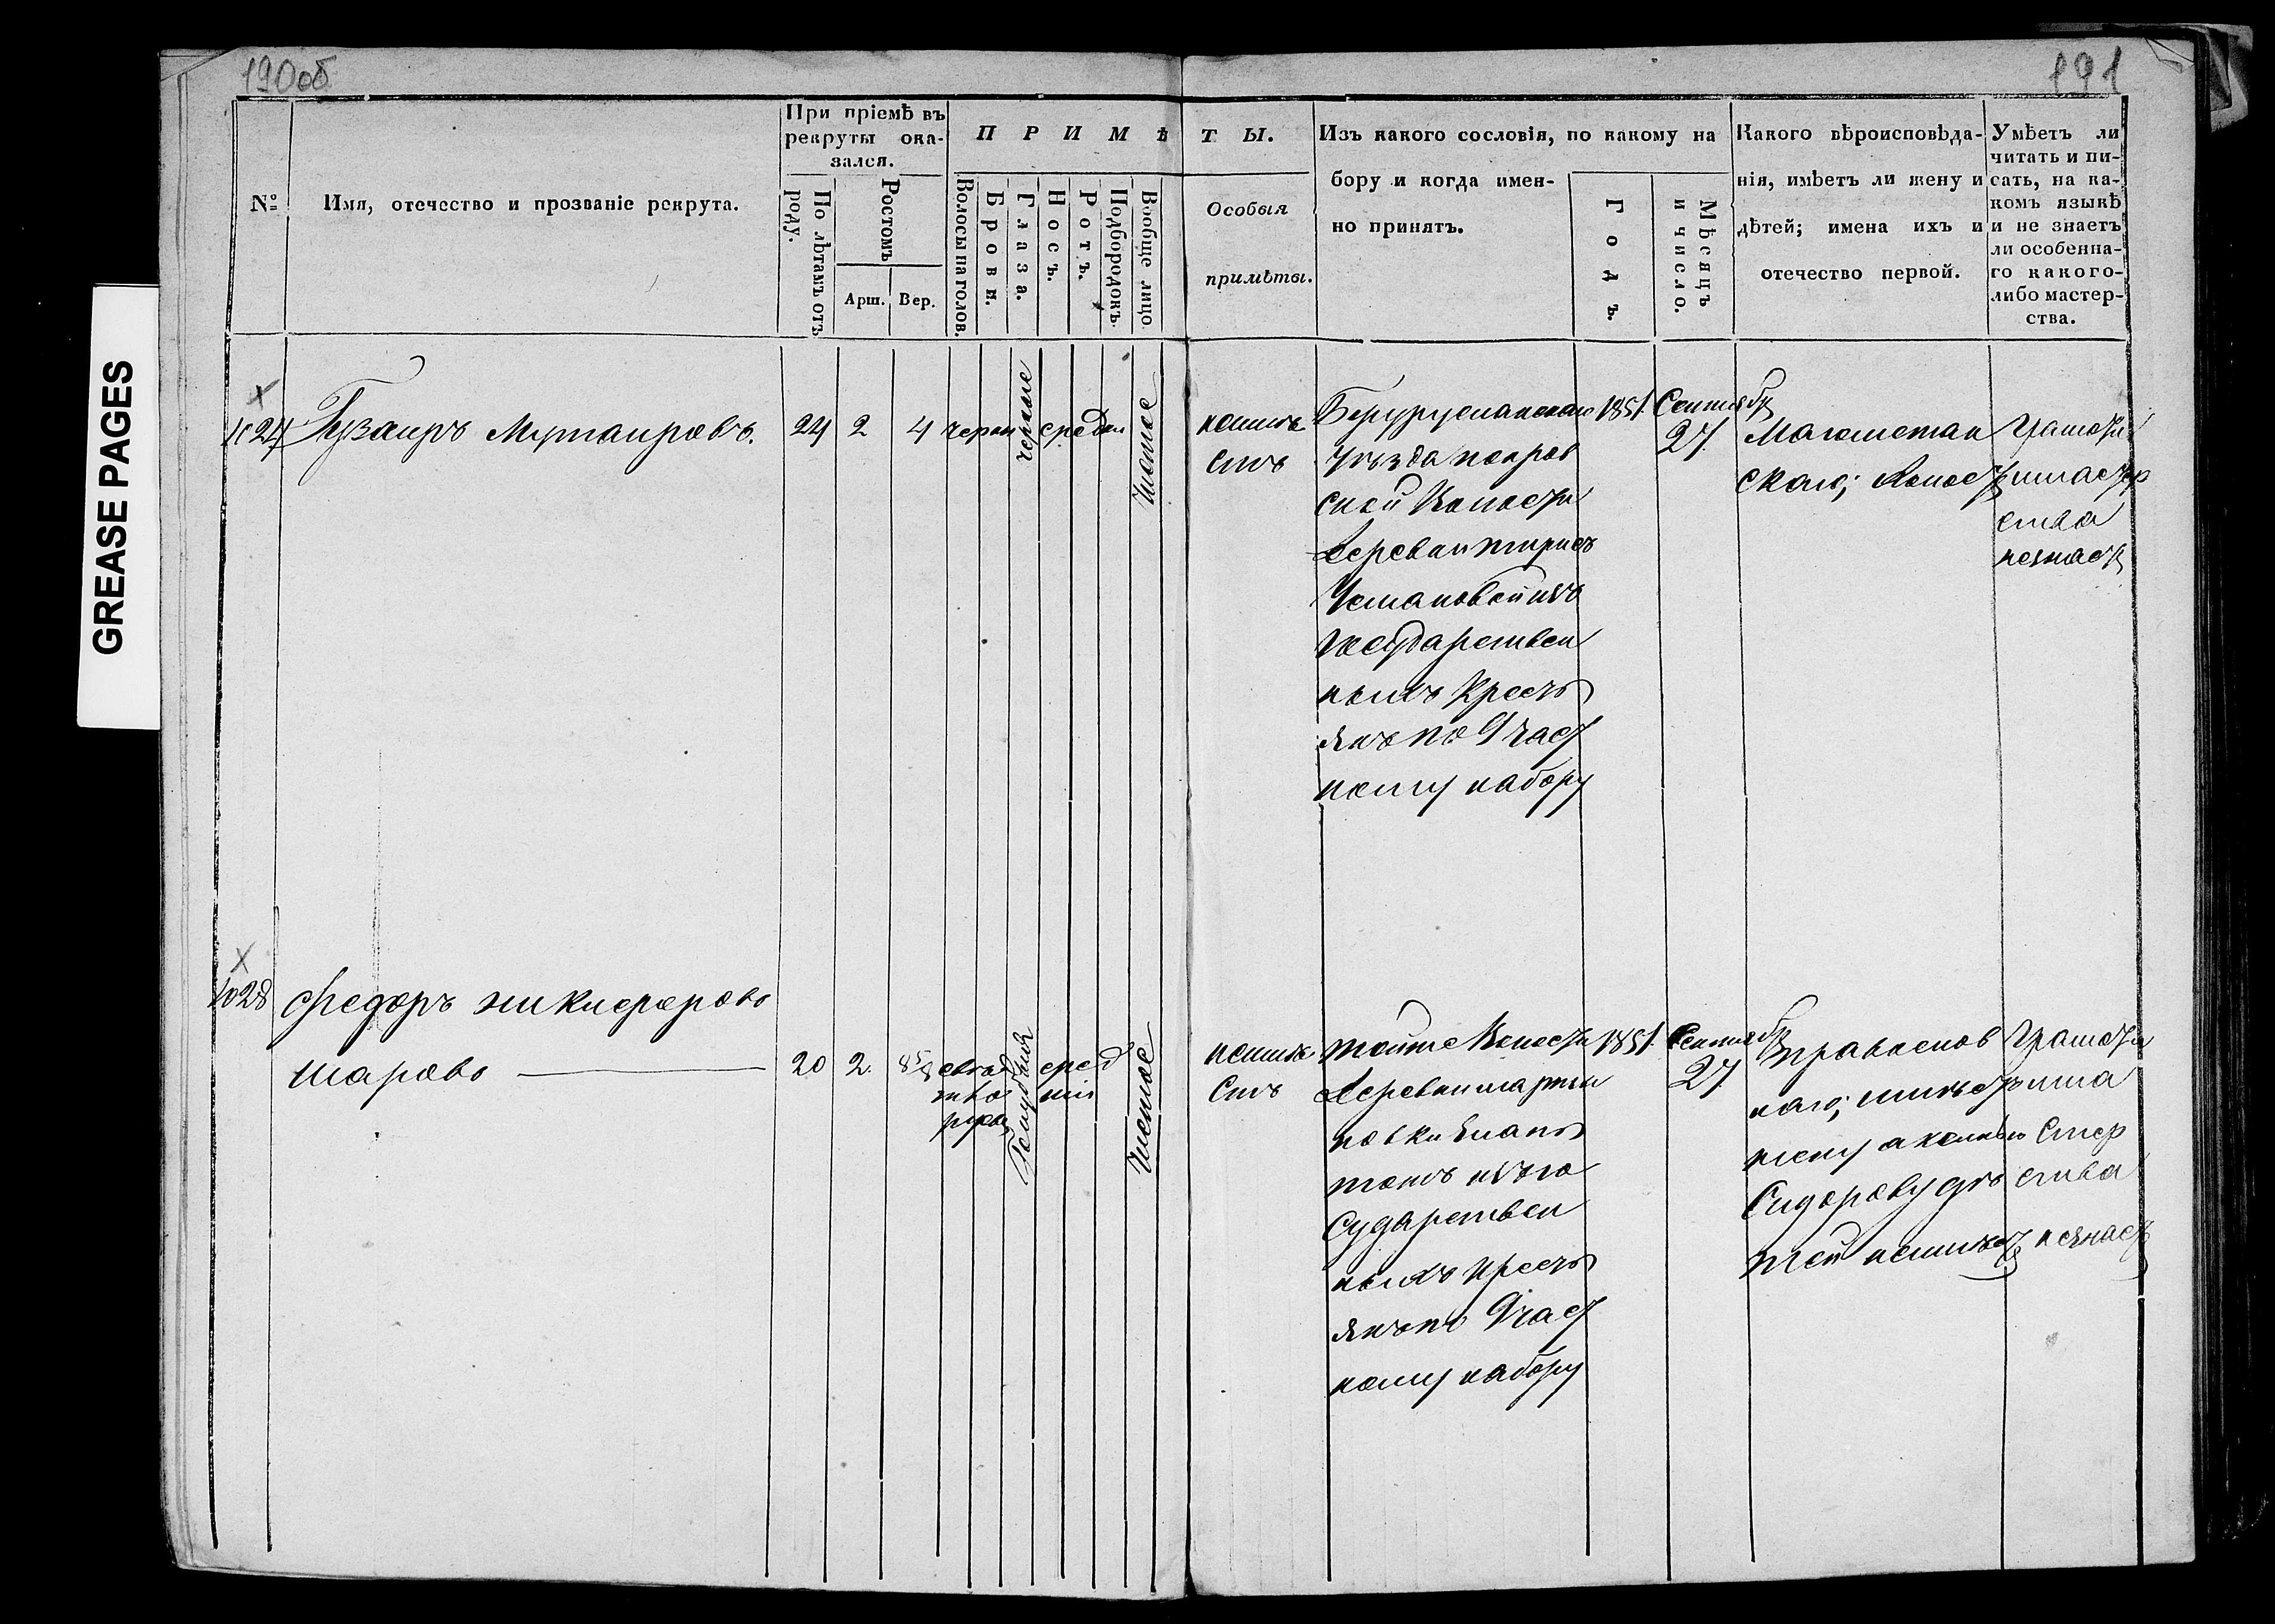 190об
191
GREASE PAGES
№
Имя, отечество и прозваніе рекрута.
При пріемѣ въ
рекруты ока-
зался.
По лѣтамъ отъ
роду.
Ростомъ
Арш.
Вер.
ПРИМѢТЫ.
Волосы на голов.
Брови.
Глаза.
Носъ.
Ротъ.
Подбородокъ.
Вообще лицо.
Особыя
примѣты.
Изъ какого сословія, по какому на
бору и когда имен-
но принятъ.
Годъ.
Мѣсяцъ
и число.
Какого вѣроисповѣда-
нія, имѣетъ ли жену и
дѣтей; имена ихъ и
отечество первой.
Умѣетъ ли
читать и пи-
сать, на ка-
комъ языкѣ
и не знаетъ
ли особенна-
го какого-
либо мастер-
ства.
24 2 4 черны черные средни чистое
неимѣ
етъ
уѣзда покров
ской Волости
деревни
Усмановой изъ
государствен
ныхъ кресть
янъ по 9 част
ному набору
1851. Сентября
27
Магометан
скаго; холостъ
грамоти
мастер
ства
незнаетъ
1028 Федоръ Никифоровъ
Шаровъ 20 2. свѣт
ло
русые
Голубыя
сред
ніи
Чистое
неимѣ
етъ
тойже Волости
деревни
новки
тожъ изъ го
сударствен
ныхъ кресть
янъ по 9 част
ному набору
1851. Сентября
27
православ
наго; имѣетъ
жену
Сидорову дѣ
тей неимѣетъ
грамоти
и ма
стер
ства
незнаетъ